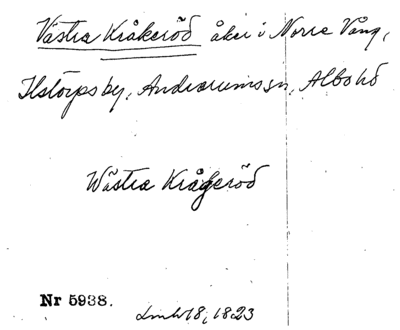 Västra Kråkeröd åker i Norra Vång,
Ilstorps by, Andrarums sn, Albo hd
Wästra Krågeröd
Nr 5938.
Lmh 18, 1823